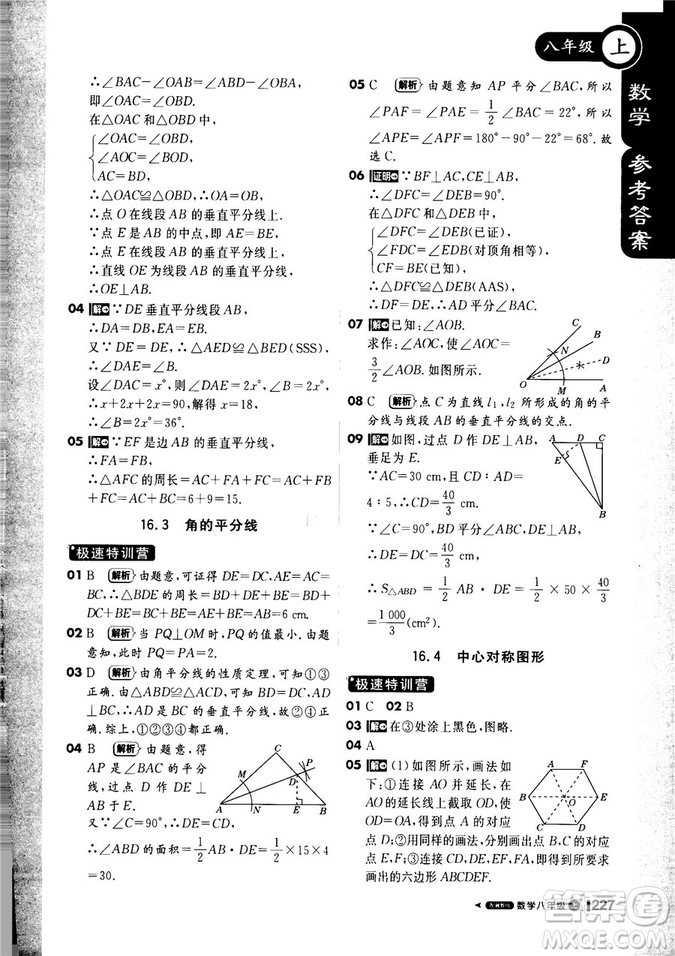 八年级 上
数学 参考答案
∴∠BAC－∠OAB＝∠ABD－∠OBA，
即∠OAC＝∠OBD.
在△OAC和△OBD中，
∠OAC＝∠OBD，
∠AOC＝∠BOD，
AC＝BD，
∴△OAC≌△OBD，∴OA＝OB，
∴点O在线段AB的垂直平分线上.
∵点E是AB的中点，即AE＝BE，
∴点E在线段AB的垂直平分线上，
∴直线OE为线段AB的垂直平分线，
∴OE⊥AB.
04 解 ∵DE垂直平分线段AB，
∴DA＝DB，EA＝EB.
又∵DE＝DE，∴△AED≌△BED(SSS)，
∴∠DAE＝∠B.
设∠DAC＝x°，则∠DAE＝2x°＝∠B，
∴x＋2x＋2x＝90，解得x＝18.
∴∠B＝2x°＝36°.
05 解 ∵EF是边AB的垂直平分线，
∴FA＝FB，
∴△AFC的周长＝AC＋FC＋FA＝AC＋
BC＝6＋9＝15.
16.3 角的平分线
极速特训营
01 B 解析 由题意，可证得DE＝DC，AE＝AC＝
BC，∴△BDE的周长＝BD＋DE＋EB＝BD＋
DC＋BE＝BC＋BE＝AE＋BE＝AB＝6 cm.
02 B 解析 当PQ⊥OM时，PQ的值最小.由题
意知，此时PQ＝PA＝2.
03 D 解析 由角平分线的性质定理，可知①③
正确.由题意可知△ABD≌△ACD，故AB＝
AC，∴AD是BC的垂直平分线，故②④正
确.综上，①②③④均正确.
04 B 解析 由题意，得
AP是∠BAC的平分
线，过点D作DE⊥AB
于E.
又∵∠C＝90°，∴DE＝CD，
∴∠ABD的面积＝1/2 AB·DE＝1/2×15×4
＝30.
C
M
P
D
A
N
E
B
05 C 解析 由题意知AP平分∠BAC，所以
∠PAF＝∠PAE＝1/2∠BAC＝22°，所以
∠APE＝∠APF＝180°－90°－22°＝68°.故
选C.
06 证明 ∵BF⊥AC，CE⊥AB，
∴∠DFC＝∠DEB＝90°.
在△DFC和△DEB中，
∠DFC＝∠DEB(已证)，
∠FDC＝∠EDB(对顶角相等)，
CF＝BE(已知)，
∴△DFC≌△DEB(AAS)，
∴DF＝DE，∴AD平分∠BAC.
07 解 已知：∠AOB.
求作：∠AOC，使∠AOC＝
3/2∠AOB.如图所示.
C
B
N
D
O
M
A
08 C 解析 点C为直线l₁，l₂所形成的角的平
分线与线段AB的垂直平分线的交点.
09 解 如图，过点D作DE⊥AB，
垂足为E.
∵AC＝30 cm，AD∶CD＝
4∶5，∴CD＝40/3 cm.
∵∠ABD＝∠DBC，∴DE＝
CD＝40/3 cm.
∴S△ABD＝1/2 AB·DE＝1/2×50×40/3＝
1 000/3(cm²).
A
D
C
E
B
16.4 中心对称图形
极速特训营
01 C 02 B
03 解 在③处涂上黑色，图略.
04 A
05 解 (1)如图所示，画法如
下：①连接AO并延长，在
AO的延长线上截取OD，使
OD＝OA，点D是点A的对应
点；②用同样的画法，分别画出点B，C的对应
点E，F；③顺次连接各点.如图所示的就是所
画出的六边形ABCDEF.
A
F
B
O
E
C
D
数学八年级 上 227
答案卷
MXQE.COM